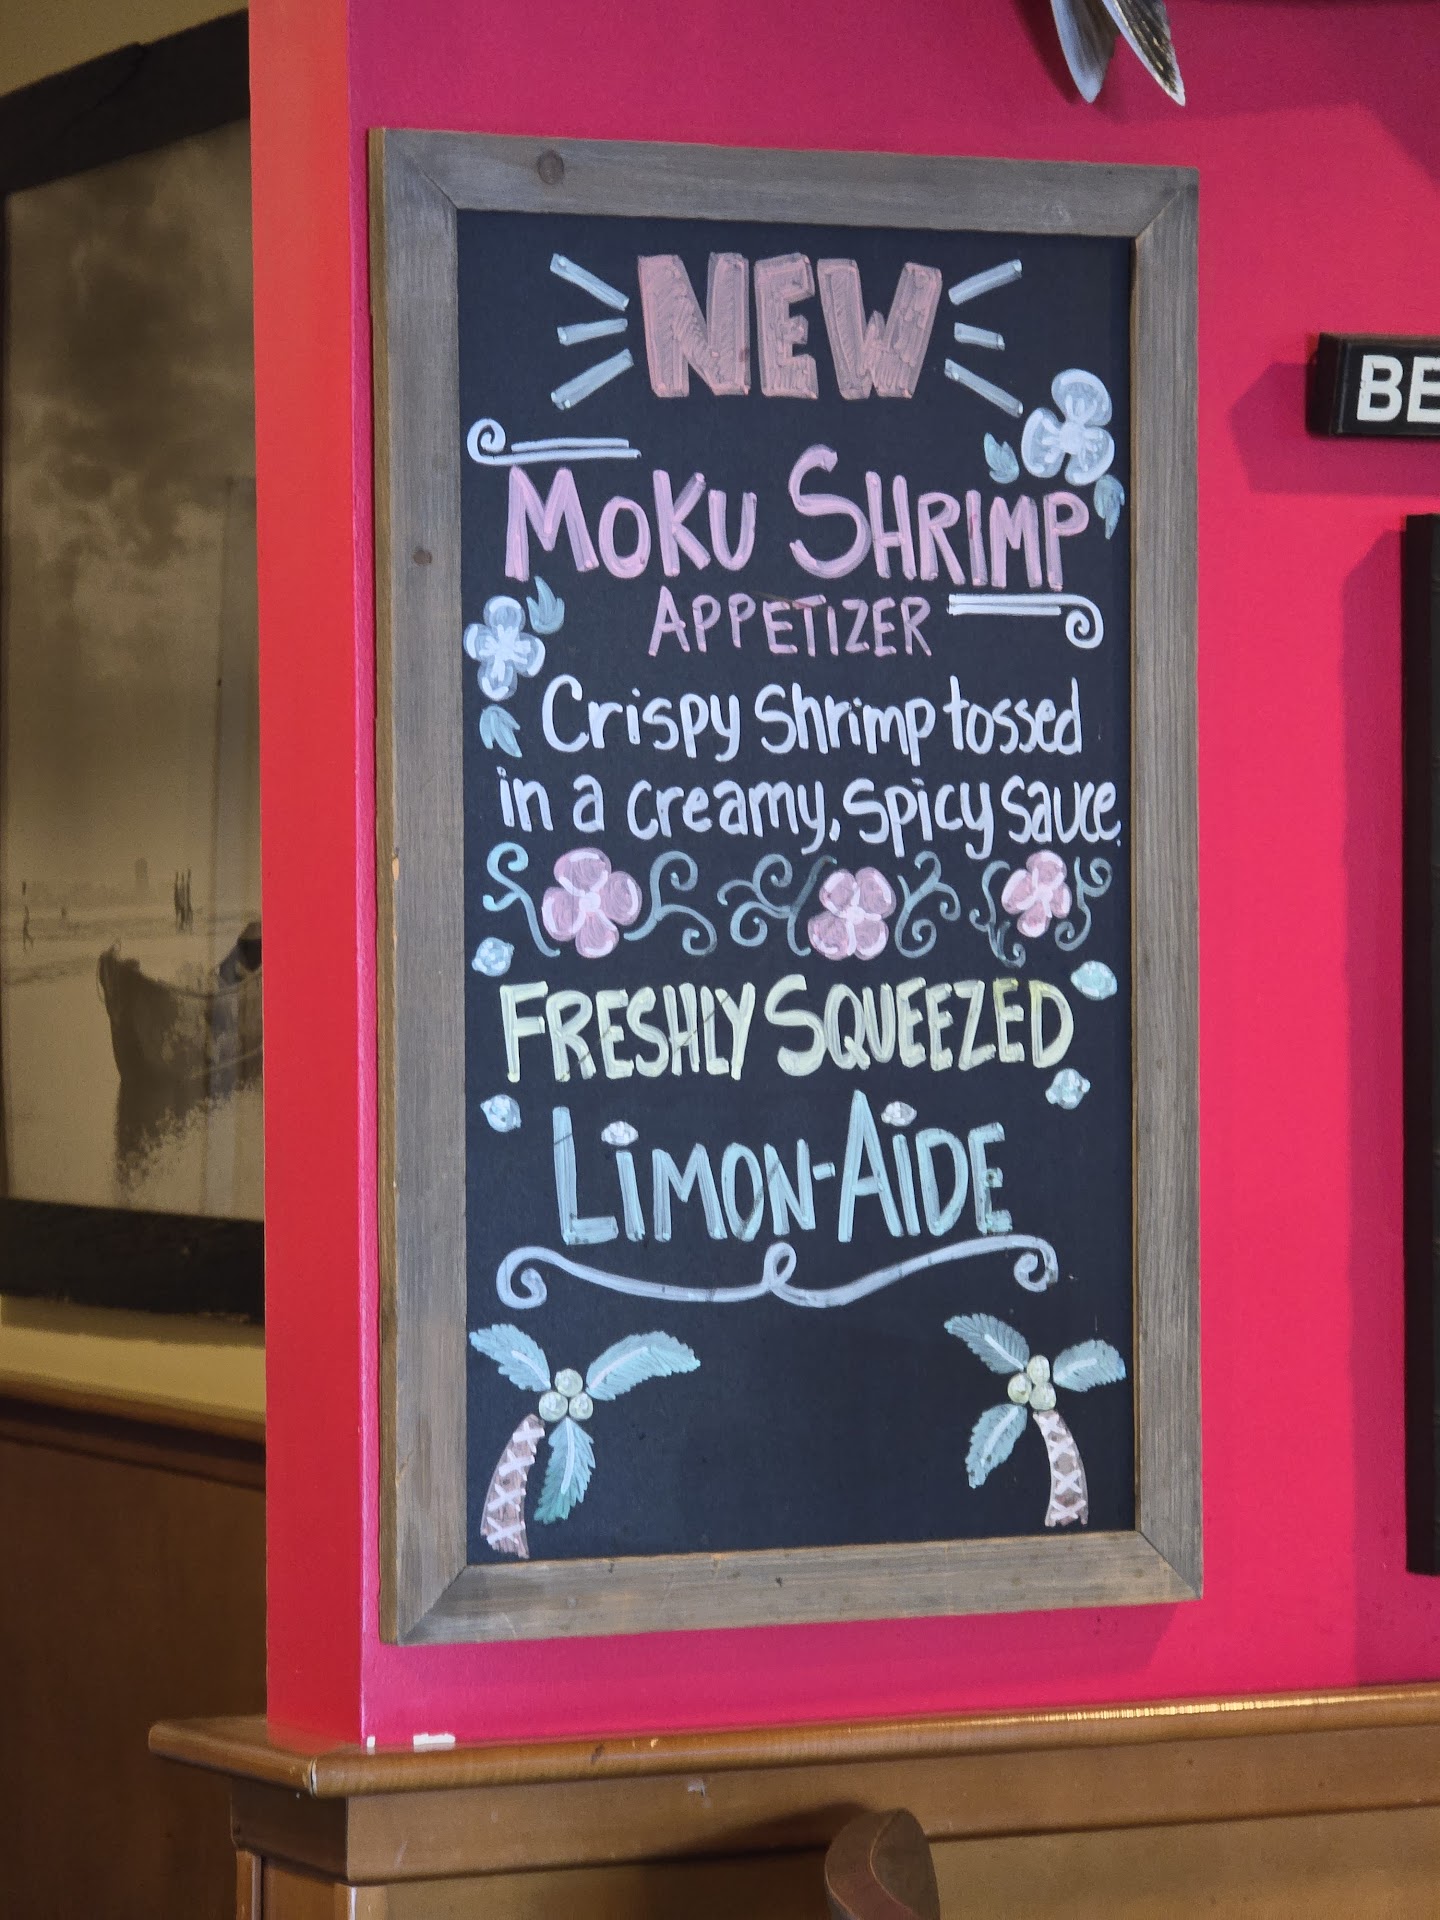 NEW
MOKU SHRIMP
APPETIZER
Crispy Shrimp tossed
in a creamy, spicy sauce.
FRESHLY SQUEEZED
LIMON-AIDE
BE